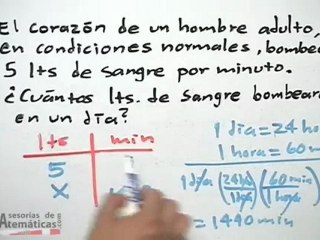 El corazón de un hombre adulto,
en condiciones normales, bombea
5 lts de sangre por minuto.
¿Cuántos lts. de sangre bombear
en un día?
lts min
5
x
1 día = 24 ho
1 hora = 60 m
1 día (24 hs / 1 día) (60 min / 1 hora)
= 1440 min
sesorías de
Atemáticas.com